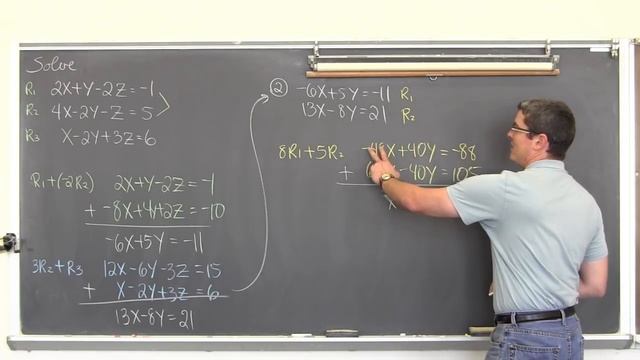 Solve
R1 2X+Y-2Z=-1
R2 4X-2Y-Z=5
R3 X-2Y+3Z=6
R1+(-2R2) 2X+Y-2Z=-1
+ -8X+4Y+2Z=-10
-6X+5Y=-11
3R2+R3 12X-6Y-3Z=15
+ X-2Y+3Z=6
13X-8Y=21
② -6X+5Y=-11 R1
13X-8Y=21 R2
8R1+5R2 -48X+40Y=-88
+ -40Y=105
X